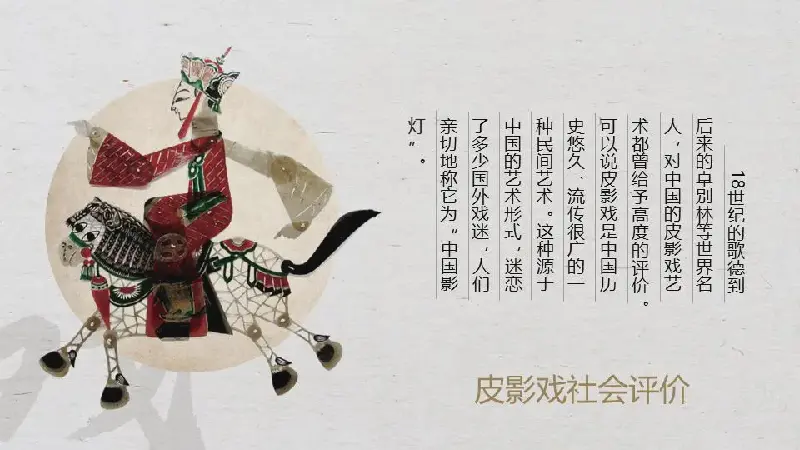 18世纪的歌德到
后来的卓别林等世界名
人,对中国的皮影戏艺
术都曾给予高度的评价。
可以说皮影戏是中国历
史悠久、流传很广的一
种民间艺术。这种源于
中国的艺术形式,迷恋
了多少国外戏迷,人们
亲切地称它为“中国影
灯”。
皮影戏社会评价